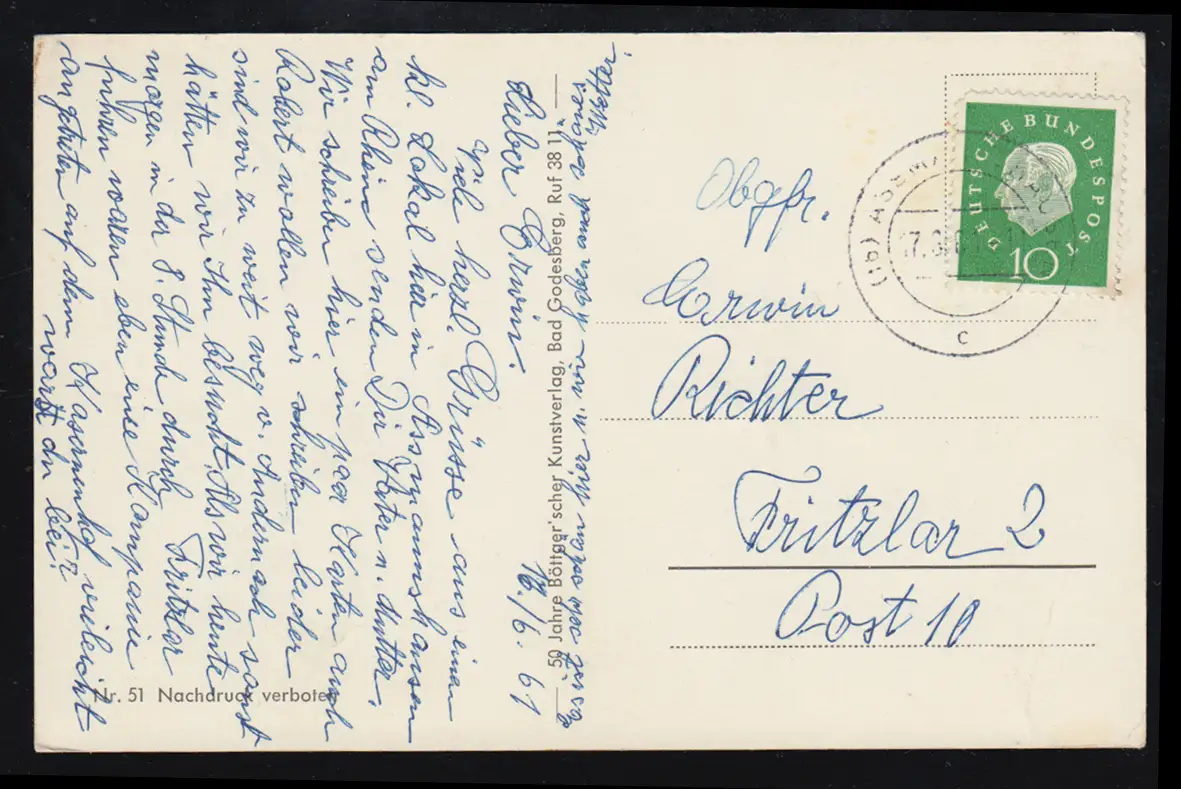 Lieber Erwin. 16./6. 61
Viele herzl. Grüsse aus einem
kl. Lokal hier in Assmannshausen
am Rhein senden Dir Vater u. Mutter.
Wir schreiben hier ein paar Karten auch
Robert wollen wir schreiben leider
sind wir zu weit weg v. Andernach sonst
hätten wir Ihn besucht. Als wir heute
morgen in der 8. Stunde durch Fritzlar
fuhren waren eben eine Kompanie
angetreten auf dem Kasernenhof vieleicht
warst du bei?
hier u. wir schönes
Wetter.
50 Jahre Böttger'scher Kunstverlag, Bad Godesberg, Ruf 38 11
Nr. 51 Nachdruck verboten
DEUTSCHE BUNDESPOST
10
(16)
c
Obgfr.
Erwin
Richter
Fritzlar 2
Post 10